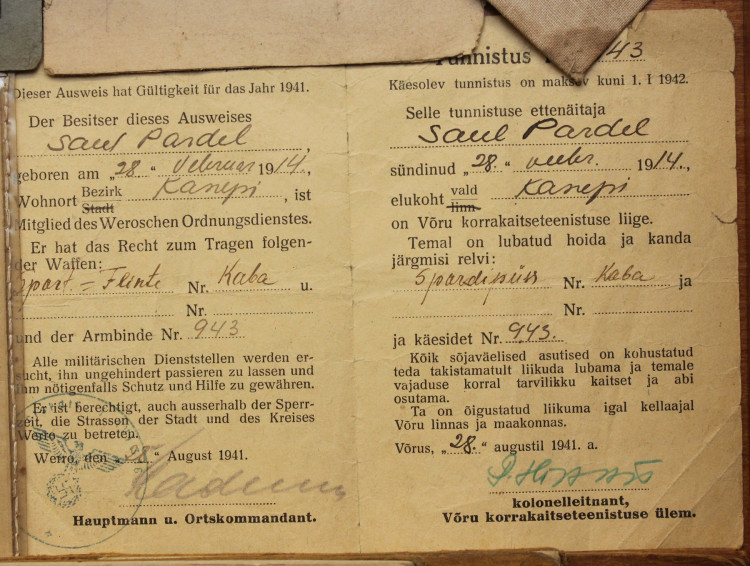 Dieser Ausweis hat Gültigkeit für das Jahr 1941.
Der Besitser dieses Ausweises
Saul Pardel,
geboren am „28." Vebruar 1914.,
Wohnort Bezirk Stadt Kanepi, ist
Mitglied des Weroschen Ordnungsdienstes.
Er hat das Recht zum Tragen folgen-
der Waffen:
Sport = Flinte Nr. Kaba u.
Nr.
und der Armbinde Nr. 943
Alle militärischen Dienststellen werden er-
sucht, ihn ungehindert passieren zu lassen und
ihm nötigenfalls Schutz und Hilfe zu gewähren.
Er ist berechtigt, auch ausserhalb der Sperr-
zeit, die Strassen der Stadt und des Kreises
Werro zu betreten.
Werro, den „28." August 1941.
Hauptmann u. Ortskommandant.
Tunnistus 943
Käesolev tunnistus on maksev kuni 1. I 1942.
Selle tunnistuse ettenäitaja
Saul Pardel
sündinud „28." veebr. 1914.,
elukoht vald linn Kanepi
on Võru korrakaitseteenistuse liige.
Temal on lubatud hoida ja kanda
järgmisi relvi:
Spordipüss Nr. Kaba ja
Nr.
ja käesidet Nr. 943.
Kõik sõjaväelised asutised on kohustatud
teda takistamatult liikuda lubama ja temale
vajaduse korral tarvilikku kaitset ja abi
osutama.
Ta on õigustatud liikuma igal kellaajal
Võru linnas ja maakonnas.
Võrus, „28." augustil 1941. a.
kolonelleitnant,
Võru korrakaitseteenistuse ülem.